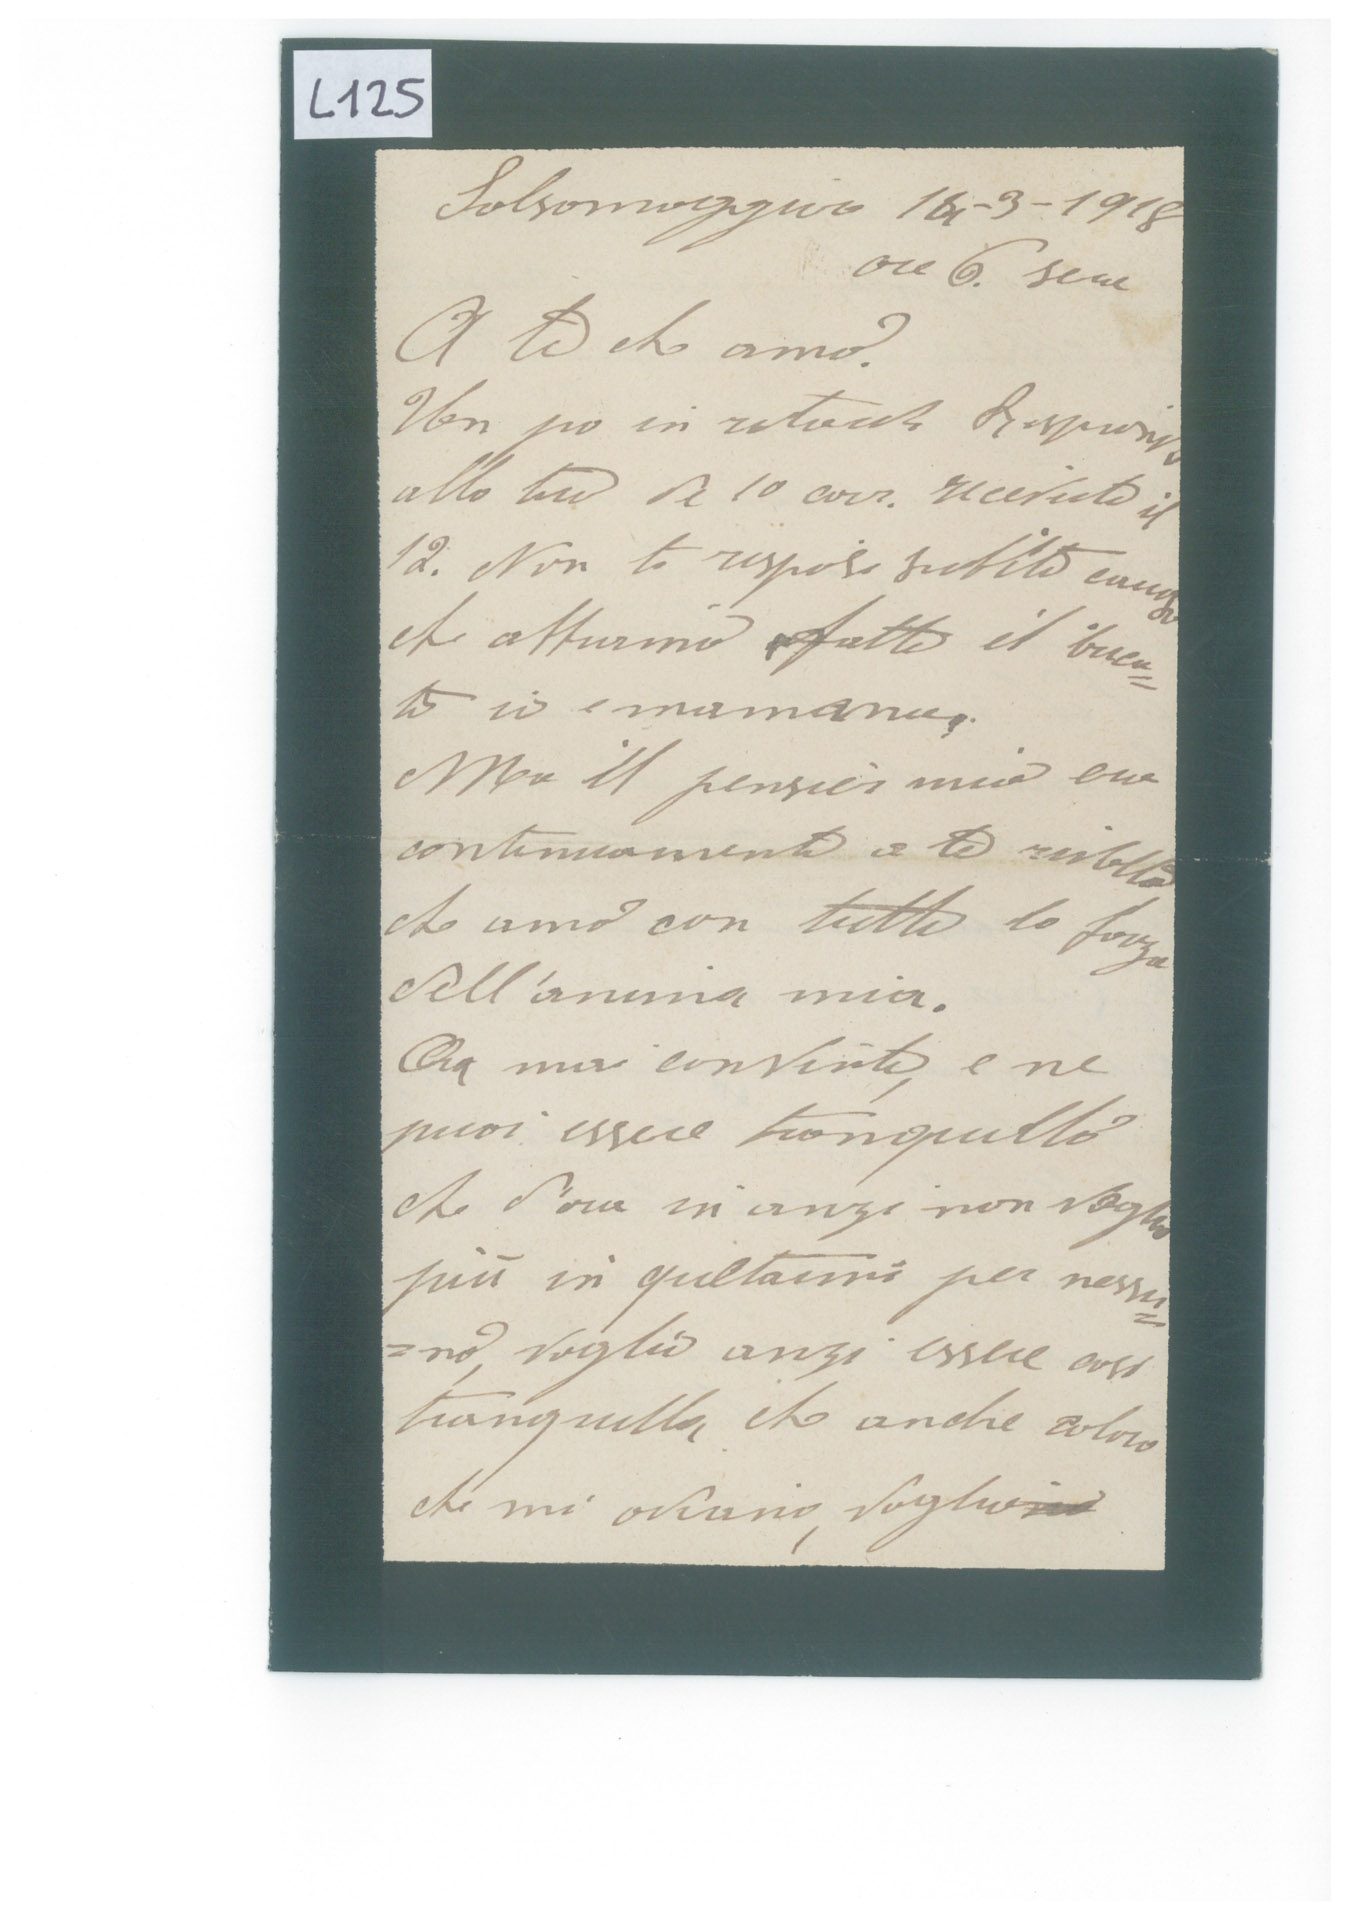 L125
Salsomaggiore 14-3-1918
ore 6. sera
A te che amo.
Un po in ritardo rispondo
alla tua de 10 corr. ricevuta il
12. Non te risposi subito causa
che abbiamo fatto il buca=
to io e mamma.
Ma il pensier mio era
continuamente a te rivolto
che amo con tutta la forza
dell'anima mia.
Ora mai convinta, e ne
puoi essere tranquillo
che d'ora in anzi non voglio
più in quietarmi per nessu=
=no, voglio anzi essere così
tranquilla che anche coloro
che mi odiano, voglio